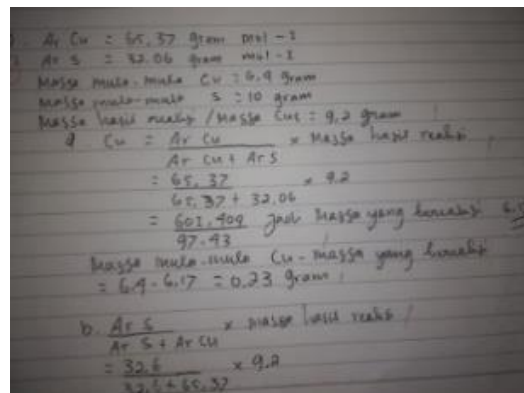 Ar Cu = 65,37 gram mol -1
Ar S = 32.06 gram mol -1
Massa mula-mula Cu = 6.4 gram
Massa mula-mula S = 10 gram
Massa hasil reaksi / Massa CuS = 9,2 gram
a Cu = Ar Cu × Massa hasil reaksi
Ar Cu + Ar S
= 65,37 × 9.2
65,37 + 32,06
= 601,404 Jadi massa yang bereaksi
97.43
Massa mula-mula Cu - massa yang bereaksi
= 6.4 - 6.17 = 0.23 gram
b. Ar S × massa hasil reaksi
Ar S + Ar Cu
= 32.6 × 9.2
32,6 + 65,37